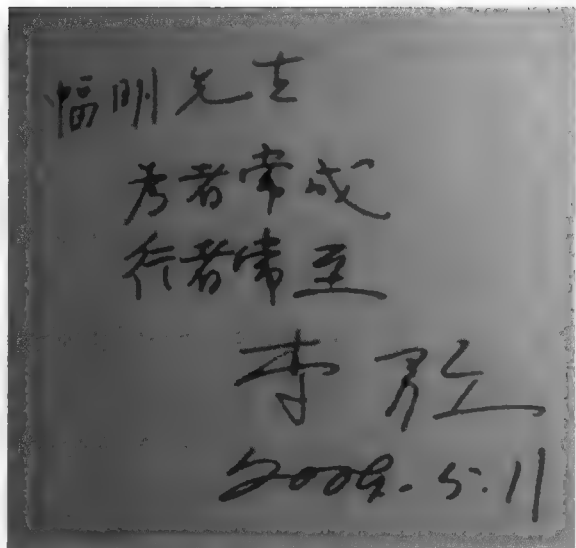 幅明先生
为者常成
行者常至
李
2009.5.11